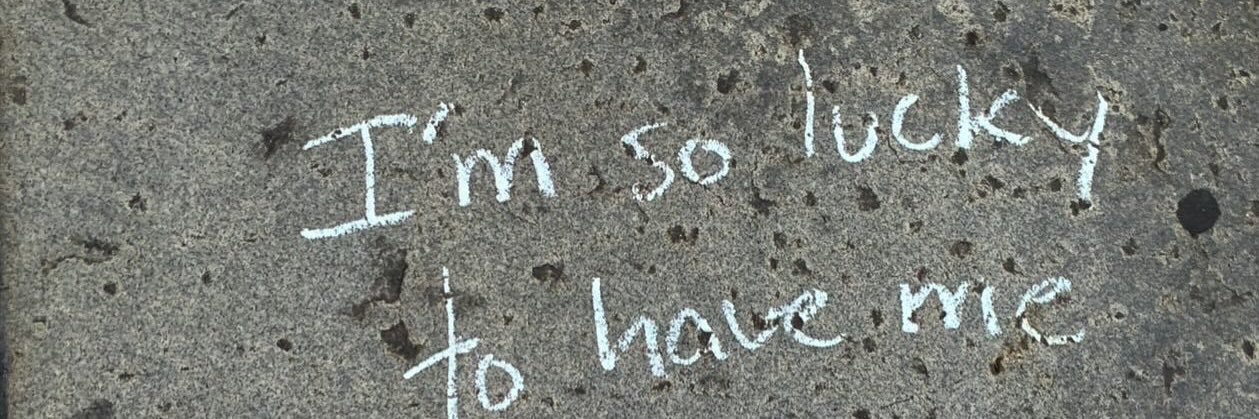 I'm so lucky
to have me